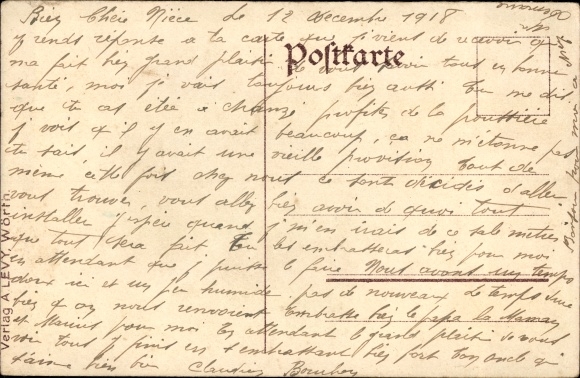 Bien Chère Nièce le 12 decembre 1918
je rends réponse a ta carte que je viens de recevoir qui
Postkarte
ma fait bien grand plaisir de vous savoir tous en bonne
santé, moi je vais toujours bien aussi tu me dis
que tu as étée a profité de la poussière
je vois qu'il y en avait beaucoup, ça ne m'étonne pas
tu sais il y avait une vieille provision tout de
même cette fois chez nous ce sont décidés d'aller
vous trouver, vous allez bien avoir de quoi tout
installer j'espère quand je m'en irais de ce sale métier
que tout sera fait tu les embrasseras bien pour moi
en attendant que je puisse le faire Nous avons un temps
doux ici et un peu humide pas de nouveaux le temps
bien qu'on nous renvoient Embrasse bien le papa la Maman
et Marius pour moi En attendant le grand plaisir de vous
voir tous je finis en t'embrassant bien fort ton oncle qui
t'aime bien Claudius
Verlag A. LEVY, Wörth.